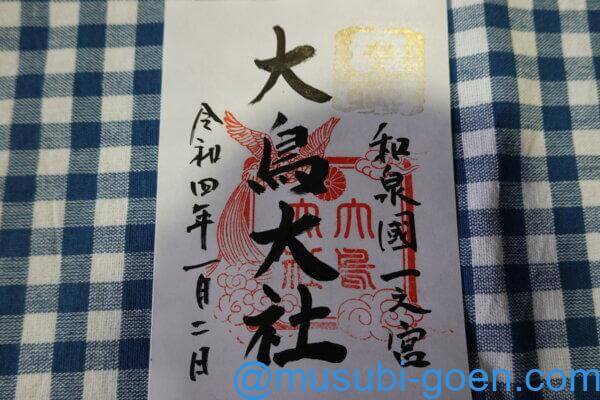 和泉國一之宮
大鳥大社
大鳥
大社
令和四年一月二日
@musubi-goen.com